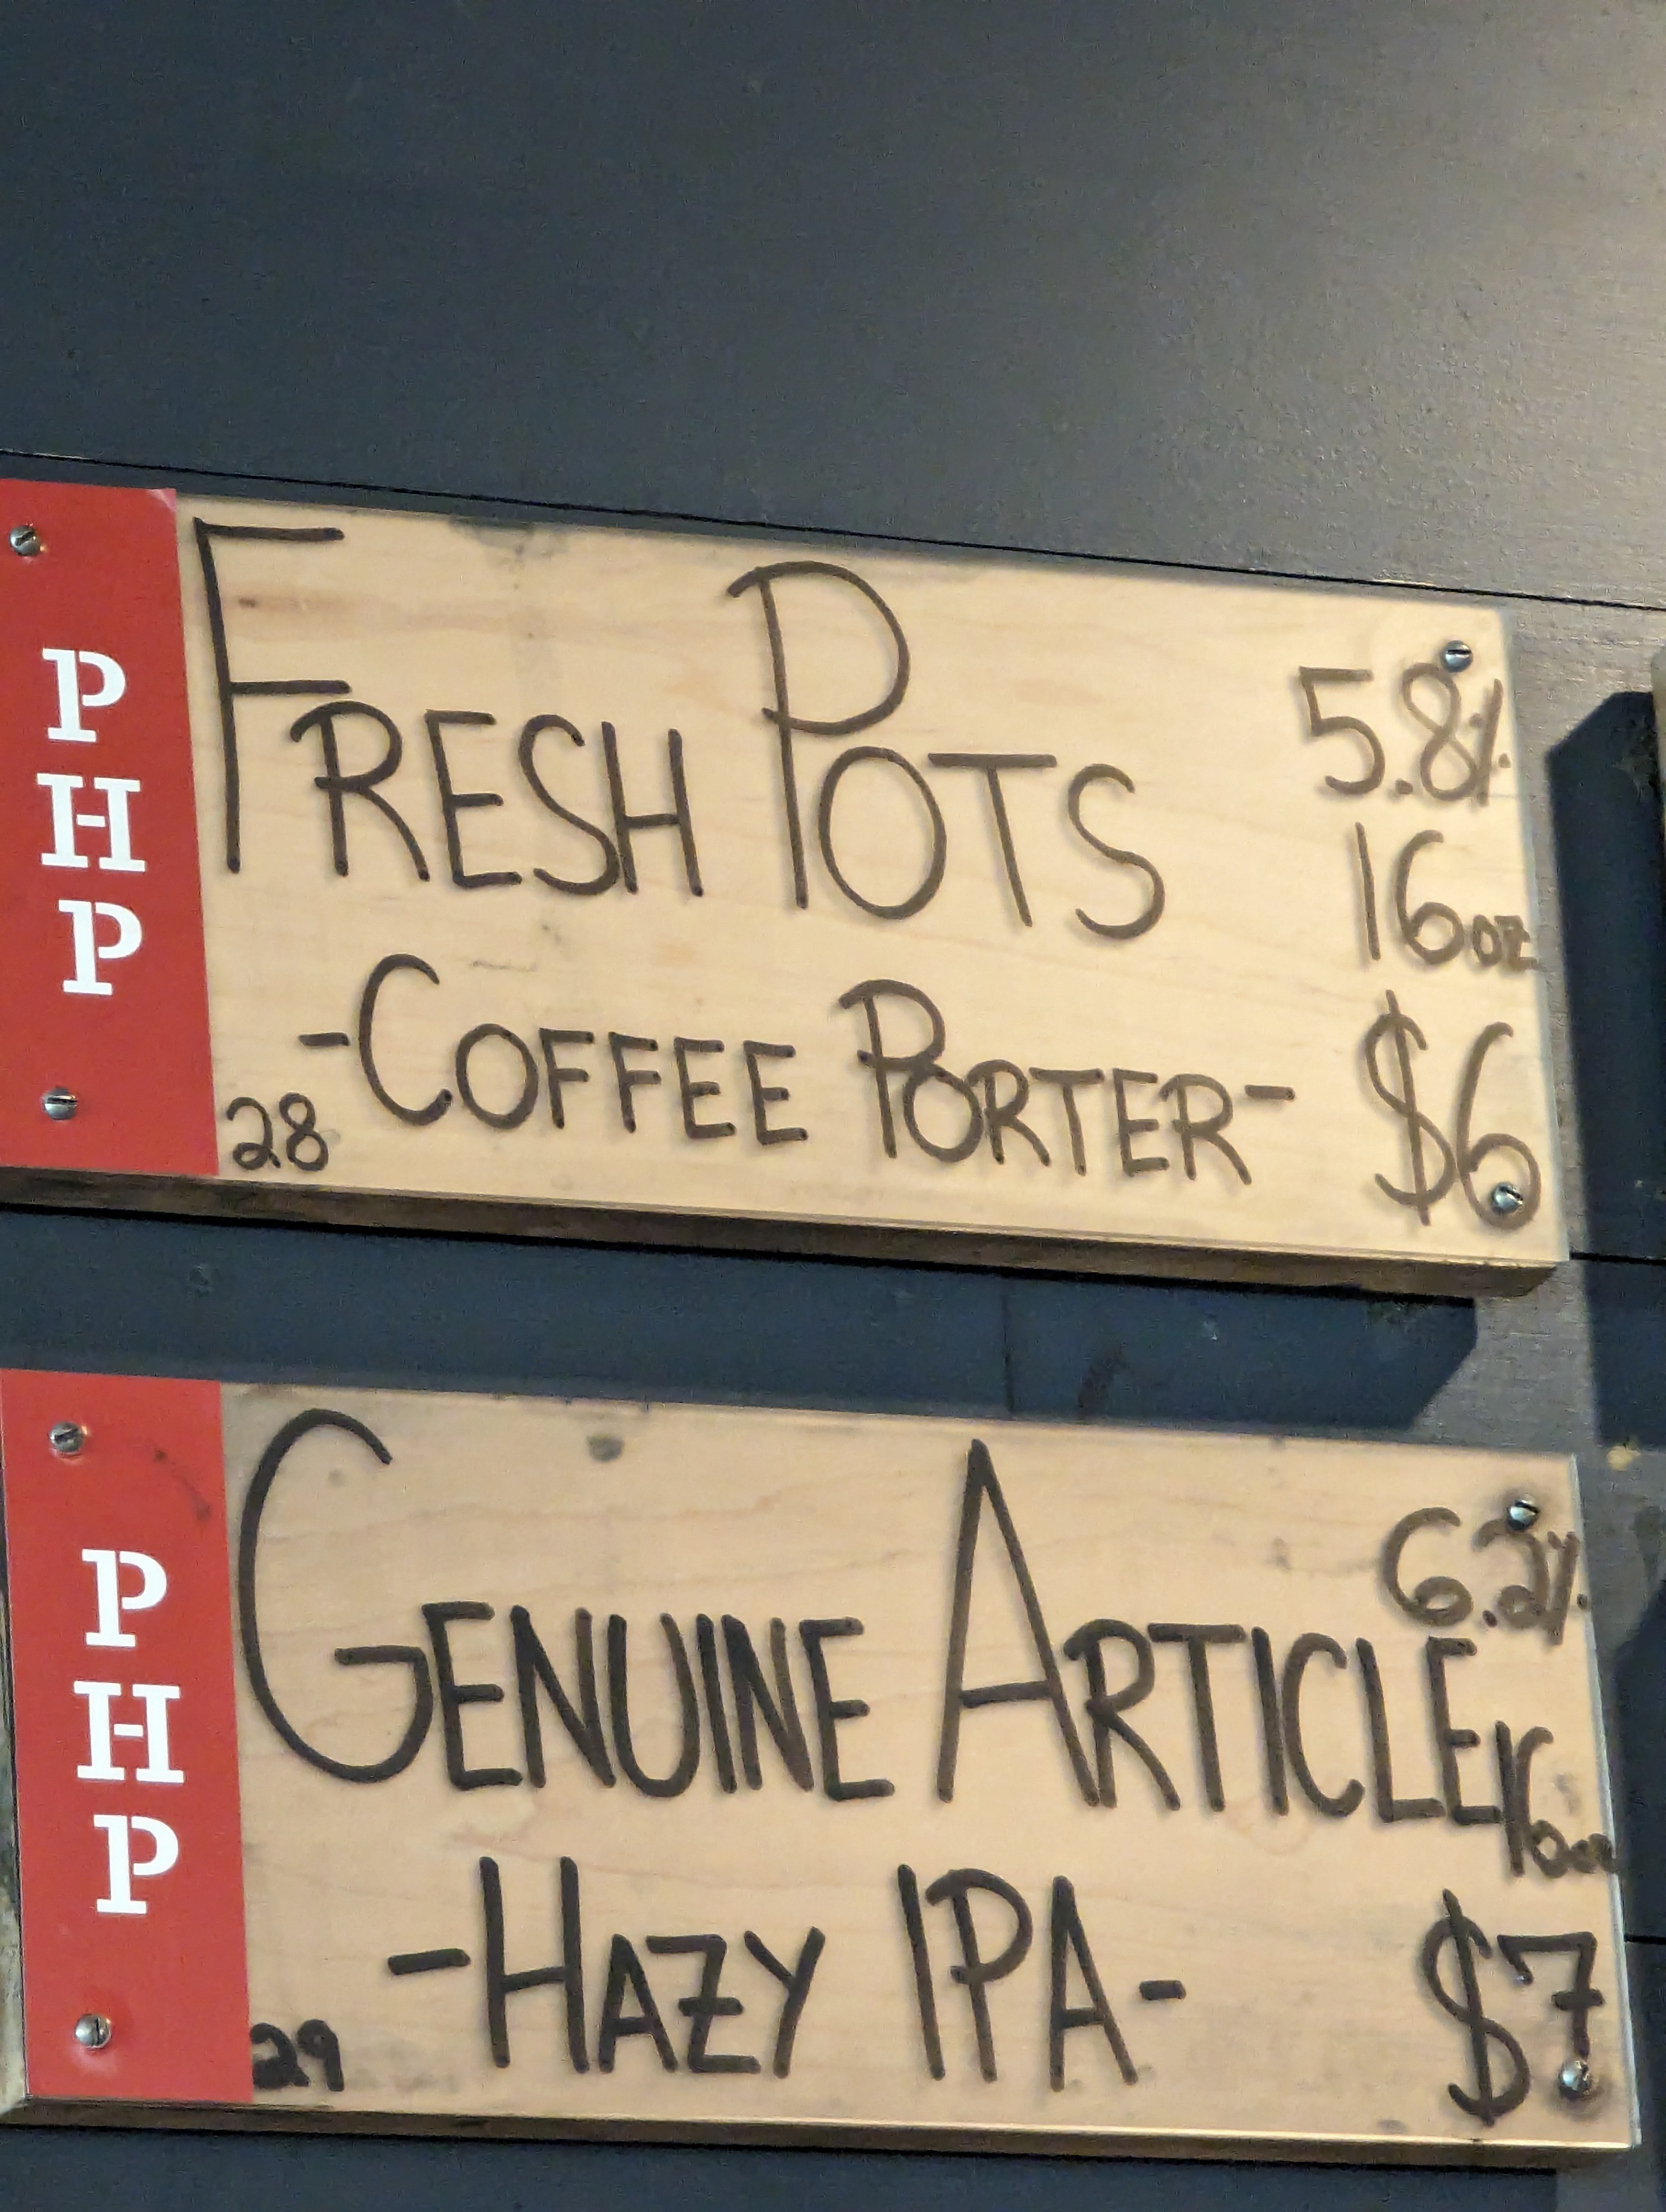 PHP
FRESH POTS
5.8%
16oz
-COFFEE PORTER-
$6
28
PHP
GENUINE ARTICLE
6.2%
16oz
-HAZY IPA-
$7
29